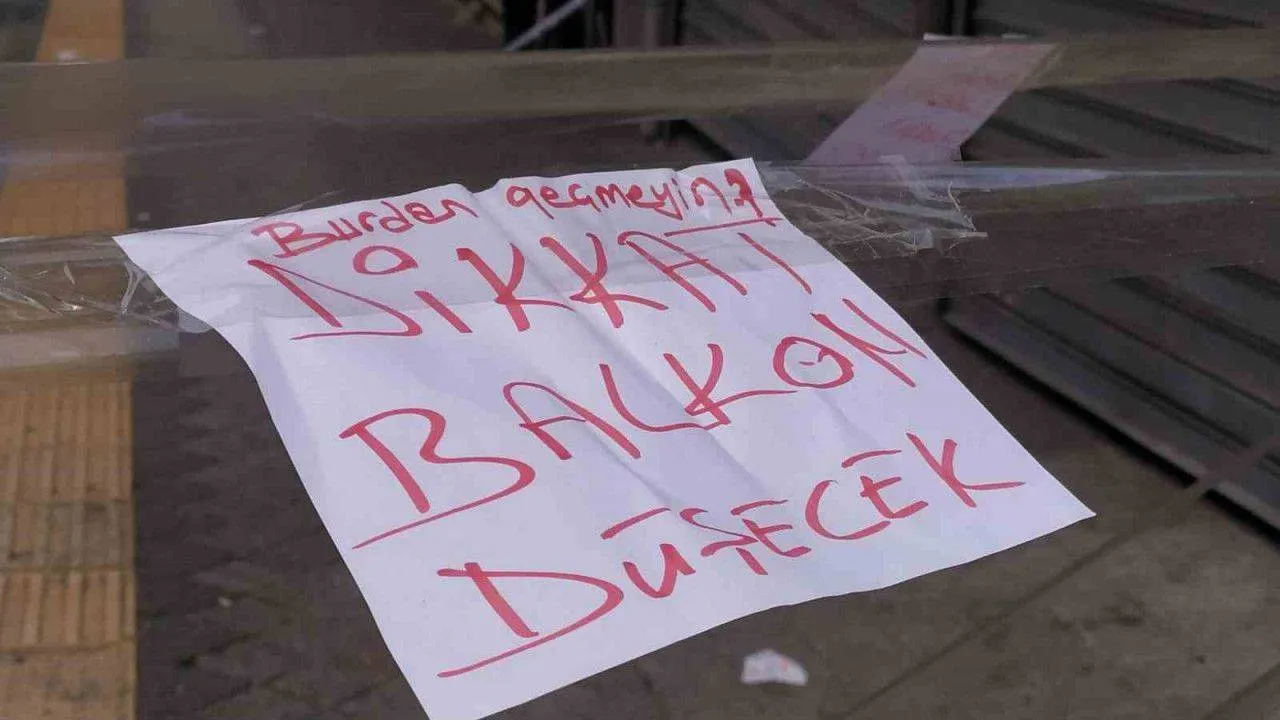 Burdan geçmeyin
DİKKAT
BALKON
DÜŞECEK